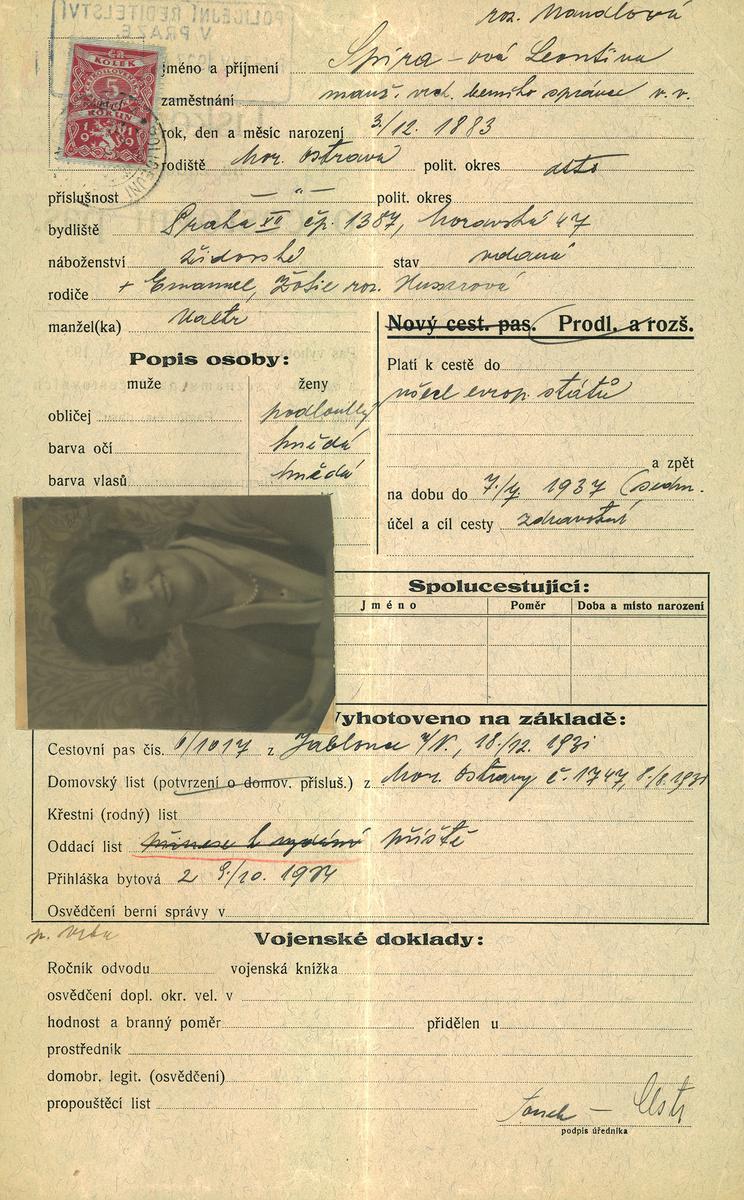 roz. Mandlová
POLICEJNÍ ŘEDITELSTVÍ
V PRAZE
KOLEK
5
KORUN
1919
jméno a příjmení Spira-ová Leontina
zaměstnání manž. vrch. berního správce v. v.
rok, den a měsíc narození 3/12. 1883
rodiště Mor. Ostrava polit. okres dtto
příslušnost — " — polit. okres
bydliště Praha XII čp. 1387, Moravská 47
náboženství židovské stav vdaná
rodiče + Emanuel, Žofie roz. Huserová
manžel(ka) Valtr
Nový cest. pas. Prodl. a rozš.
Popis osoby:
muže ženy
obličej podlouhlý
barva očí hnědá
barva vlasů hnědá
Platí k cestě do
všech evrop. států
a zpět
na dobu do 7/7 1937
účel a cíl cesty zdravotní
Spolucestující:
Jméno Poměr Doba a místo narození
Vyhotoveno na základě:
Cestovní pas čís. 6/1017 z Jablonce n/N., 18./12. 1931
Domovský list (potvrzení o domov. přísluš.) z Mor. Ostravy č. 1747, 8./8. 1931
Křestní (rodný) list
Oddací list příště
Přihláška bytová z 9/10. 1934
Osvědčení berní správy v
p. Vrba
Vojenské doklady:
Ročník odvodu vojenská knížka
osvědčení dopl. okr. vel. v
hodnost a branný poměr přidělen u
prostředník
domobr. legit. (osvědčení)
propouštěcí list
podpis úředníka